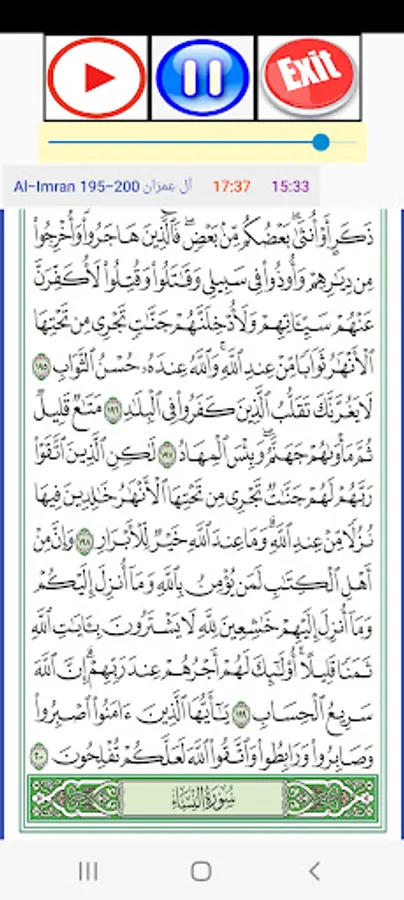 Exit
Al-Imran 195-200 آل عمران 17:37 15:33
ذَكَرٍ أَوْ أُنثَىٰ ۖ بَعْضُكُم مِّنۢ بَعْضٍ ۖ فَٱلَّذِينَ هَاجَرُوا۟ وَأُخْرِجُوا۟
مِن دِيَـٰرِهِمْ وَأُوذُوا۟ فِى سَبِيلِى وَقَـٰتَلُوا۟ وَقُتِلُوا۟ لَأُكَفِّرَنَّ
عَنْهُمْ سَيِّـَٔاتِهِمْ وَلَأُدْخِلَنَّهُمْ جَنَّـٰتٍ تَجْرِى مِن تَحْتِهَا
ٱلْأَنْهَـٰرُ ثَوَابًا مِّنْ عِندِ ٱللَّهِ ۗ وَٱللَّهُ عِندَهُۥ حُسْنُ ٱلثَّوَابِ ١٩٥
لَا يَغُرَّنَّكَ تَقَلُّبُ ٱلَّذِينَ كَفَرُوا۟ فِى ٱلْبِلَـٰدِ ١٩٦ مَتَـٰعٌ قَلِيلٌ
ثُمَّ مَأْوَىٰهُمْ جَهَنَّمُ ۚ وَبِئْسَ ٱلْمِهَادُ ١٩٧ لَـٰكِنِ ٱلَّذِينَ ٱتَّقَوْا۟
رَبَّهُمْ لَهُمْ جَنَّـٰتٌ تَجْرِى مِن تَحْتِهَا ٱلْأَنْهَـٰرُ خَـٰلِدِينَ فِيهَا
نُزُلًا مِّنْ عِندِ ٱللَّهِ ۗ وَمَا عِندَ ٱللَّهِ خَيْرٌ لِّلْأَبْرَارِ ١٩٨ وَإِنَّ مِنْ
أَهْلِ ٱلْكِتَـٰبِ لَمَن يُؤْمِنُ بِٱللَّهِ وَمَآ أُنزِلَ إِلَيْكُمْ
وَمَآ أُنزِلَ إِلَيْهِمْ خَـٰشِعِينَ لِلَّهِ لَا يَشْتَرُونَ بِـَٔايَـٰتِ ٱللَّهِ
ثَمَنًا قَلِيلًا ۗ أُو۟لَـٰٓئِكَ لَهُمْ أَجْرُهُمْ عِندَ رَبِّهِمْ ۗ إِنَّ ٱللَّهَ
سَرِيعُ ٱلْحِسَابِ ١٩٩ يَـٰٓأَيُّهَا ٱلَّذِينَ ءَامَنُوا۟ ٱصْبِرُوا۟
وَصَابِرُوا۟ وَرَابِطُوا۟ وَٱتَّقُوا۟ ٱللَّهَ لَعَلَّكُمْ تُفْلِحُونَ ٢٠٠
سُورَةُ النِّسَاءِ